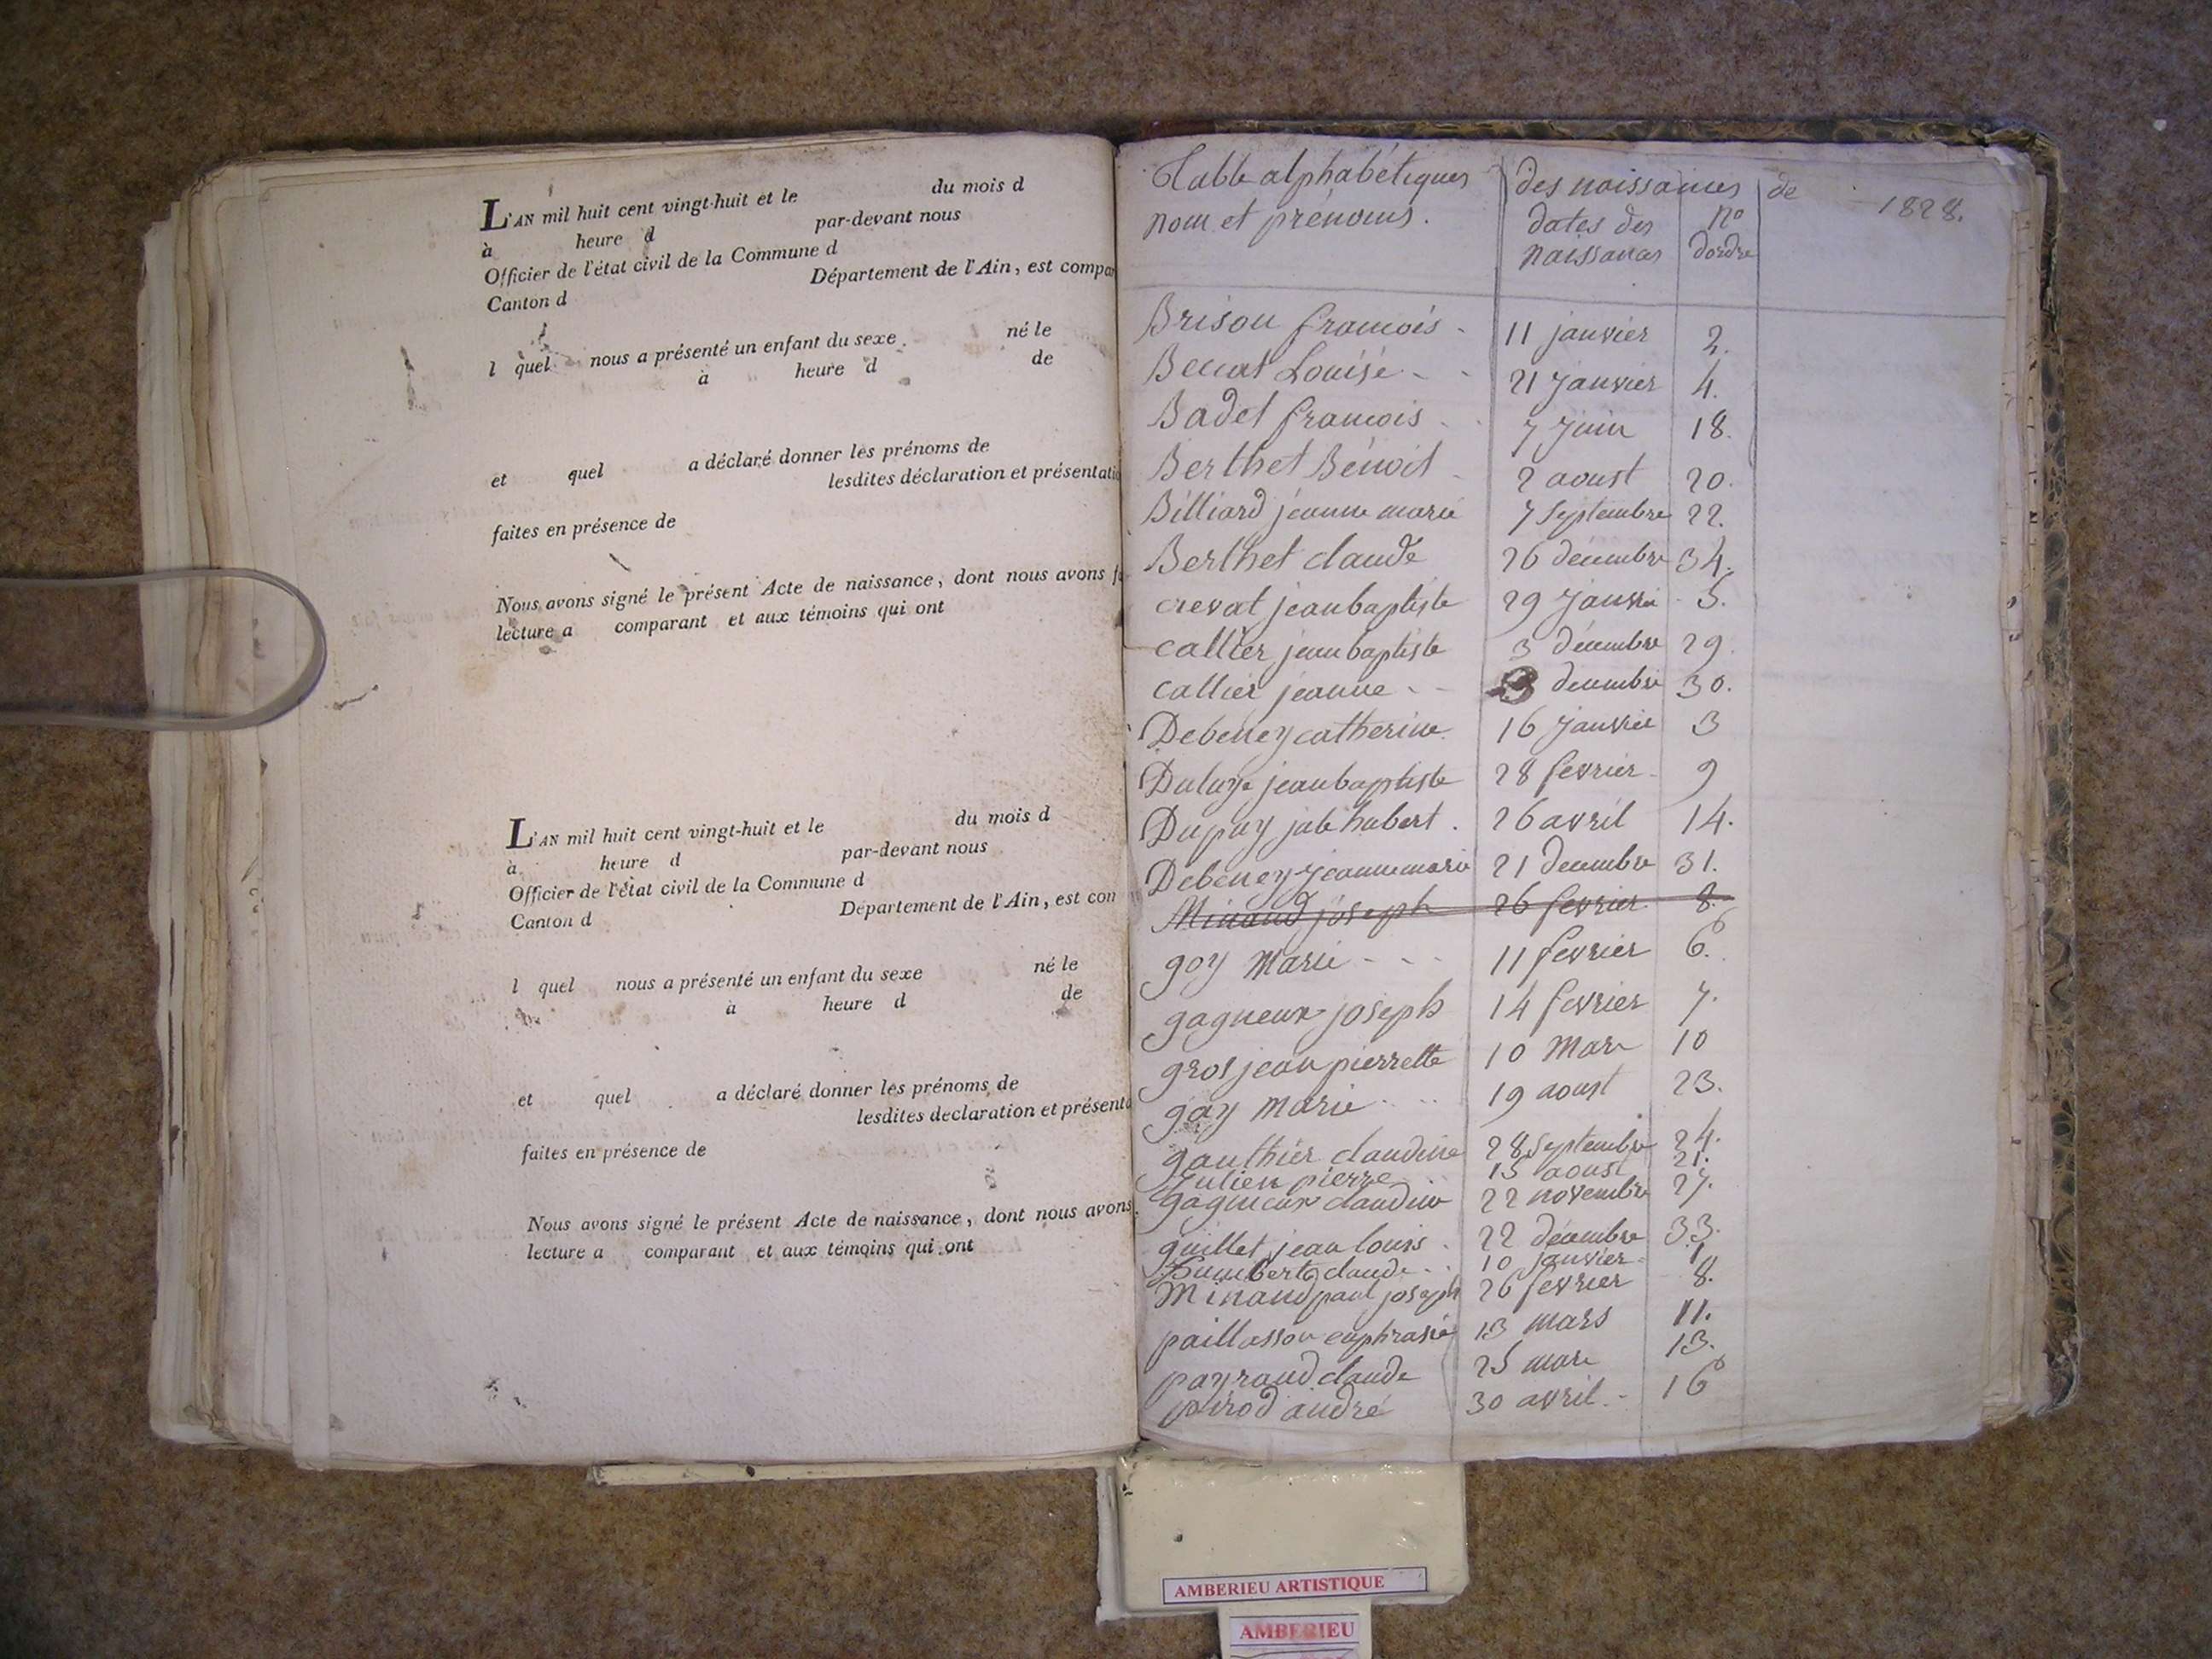 L'AN mil huit cent vingt-huit et le du mois d
à heure d par-devant nous
Officier de l'état civil de la Commune d
Canton d Département de l'Ain, est compar
l quel nous a présenté un enfant du sexe né le
à heure d de
et quel a déclaré donner les prénoms de
lesdites déclaration et présentatio
faites en présence de
Nous avons signé le présent Acte de naissance, dont nous avons fa
lecture a comparant et aux témoins qui ont
L'AN mil huit cent vingt-huit et le du mois d
à heure d par-devant nous
Officier de l'état civil de la Commune d
Canton d Département de l'Ain, est com
l quel nous a présenté un enfant du sexe né le
à heure d de
et quel a déclaré donner les prénoms de
lesdites declaration et présenta
faites en présence de
Nous avons signé le présent Acte de naissance, dont nous avons
lecture a comparant et aux témoins qui ont
Table alphabétiques des naissances de 1828.
nom et prénoms. dates des naissances no dordre
Brison francois 11 janvier 2.
Beccat Louise 21 janvier 4.
Badet francois 7 juin 18.
Berthet Bénoit 2 aoust 20.
Billiard jeanne marie 7 Septembre 22.
Berthet claude 26 décembre 34.
crevat jean baptiste 29 janvié 5.
callier jean baptiste 3 décembre 29.
callier jeanne 3 decembre 30.
Debeney catherine 16 janvier 3
jean baptiste 28 fevrier 9
Dupuy hubert. 26 avril 14.
Debeney jeanne marie 21 decembre 31.
Minaud joseph 26 fevrier 8.
goy Marie 11 fevrier 6.
gagneux joseph 14 fevrier 7.
gros jean pierrette 10 Mars 10
gay marie 19 aoust 23.
gauthier claudine 28 septembre 24.
Julien pierre 15 aoust 21.
gagneux claudine 22 novembre 27.
guillet jean louis 22 décembre 33.
humbert claude 10 janvier 1
Minaud paul joseph 26 fevrier 8.
paillasson euphrasie 13 mars 11.
payraud claude 25 mars 13.
pirod andré 30 avril 16
AMBERIEU ARTISTIQUE
AMBERIEU